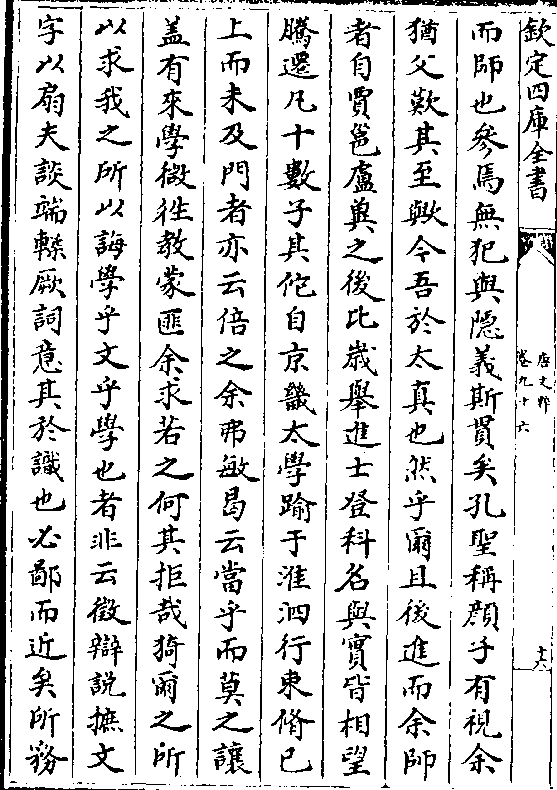 欽定四庫全書
唐文粹
卷九十六
十六
而師也參焉無犯與隱義斯貫矣孔聖稱顏子有視余
猶父歎其至歟今吾於太真也然乎爾且後進而余師
者自賈邕盧冀之後比歲舉進士登科名與實皆相望
騰遷凡十數子其佗自京畿太學踰于淮泗行束脩已
上而未及門者亦云倍之余弗敏曷云當乎而莫之讓
盖有來學微徃教蒙匪余求若之何其拒哉猗爾之所
以求我之所以誨學乎文乎學也者非云徵辯說摭文
字以扇夫談端轢厥詞意其於識也必鄙而近矣所務